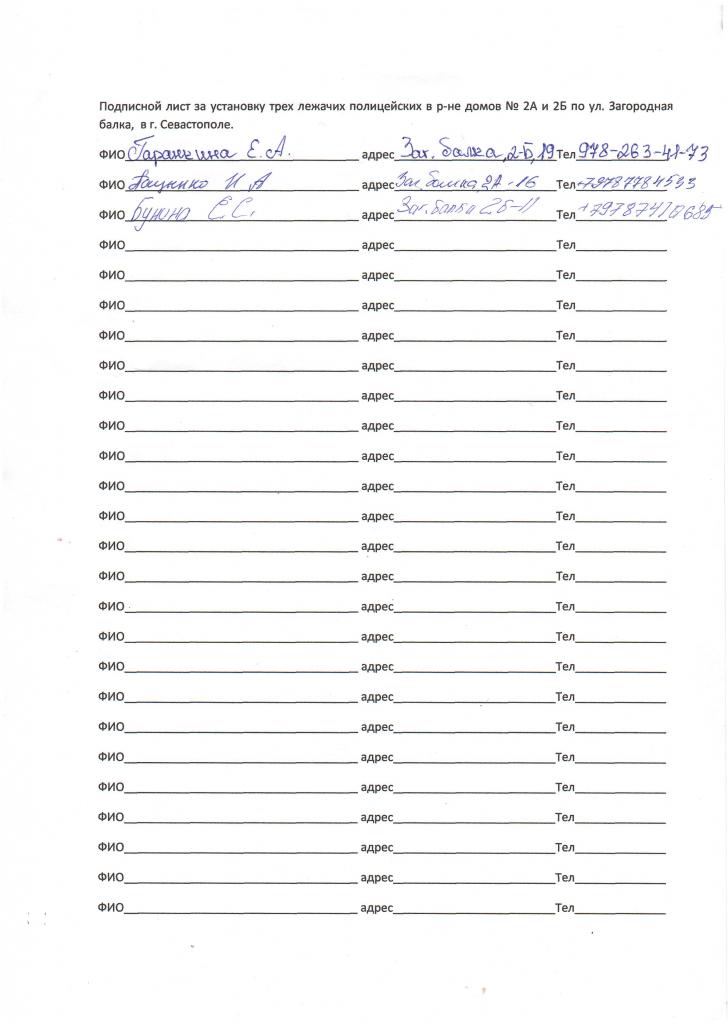 Подписной лист за установку трех лежачих полицейских в р-не домов № 2А и 2Б по ул. Загородная
балка, в г. Севастополе.
ФИО Гаранкина Е.А. адрес Заг. балка, 2-Б, 19 Тел 978-263-41-73
ФИО И А адрес Заг. балка, 2А - 16 Тел +79787784533
ФИО Бунина Е.С. адрес Заг. балка 2Б-11 Тел
ФИО адрес Тел
ФИО адрес Тел
ФИО адрес Тел
ФИО адрес Тел
ФИО адрес Тел
ФИО адрес Тел
ФИО адрес Тел
ФИО адрес Тел
ФИО адрес Тел
ФИО адрес Тел
ФИО адрес Тел
ФИО адрес Тел
ФИО адрес Тел
ФИО адрес Тел
ФИО адрес Тел
ФИО адрес Тел
ФИО адрес Тел
ФИО адрес Тел
ФИО адрес Тел
ФИО адрес Тел
ФИО адрес Тел
ФИО адрес Тел
ФИО адрес Тел